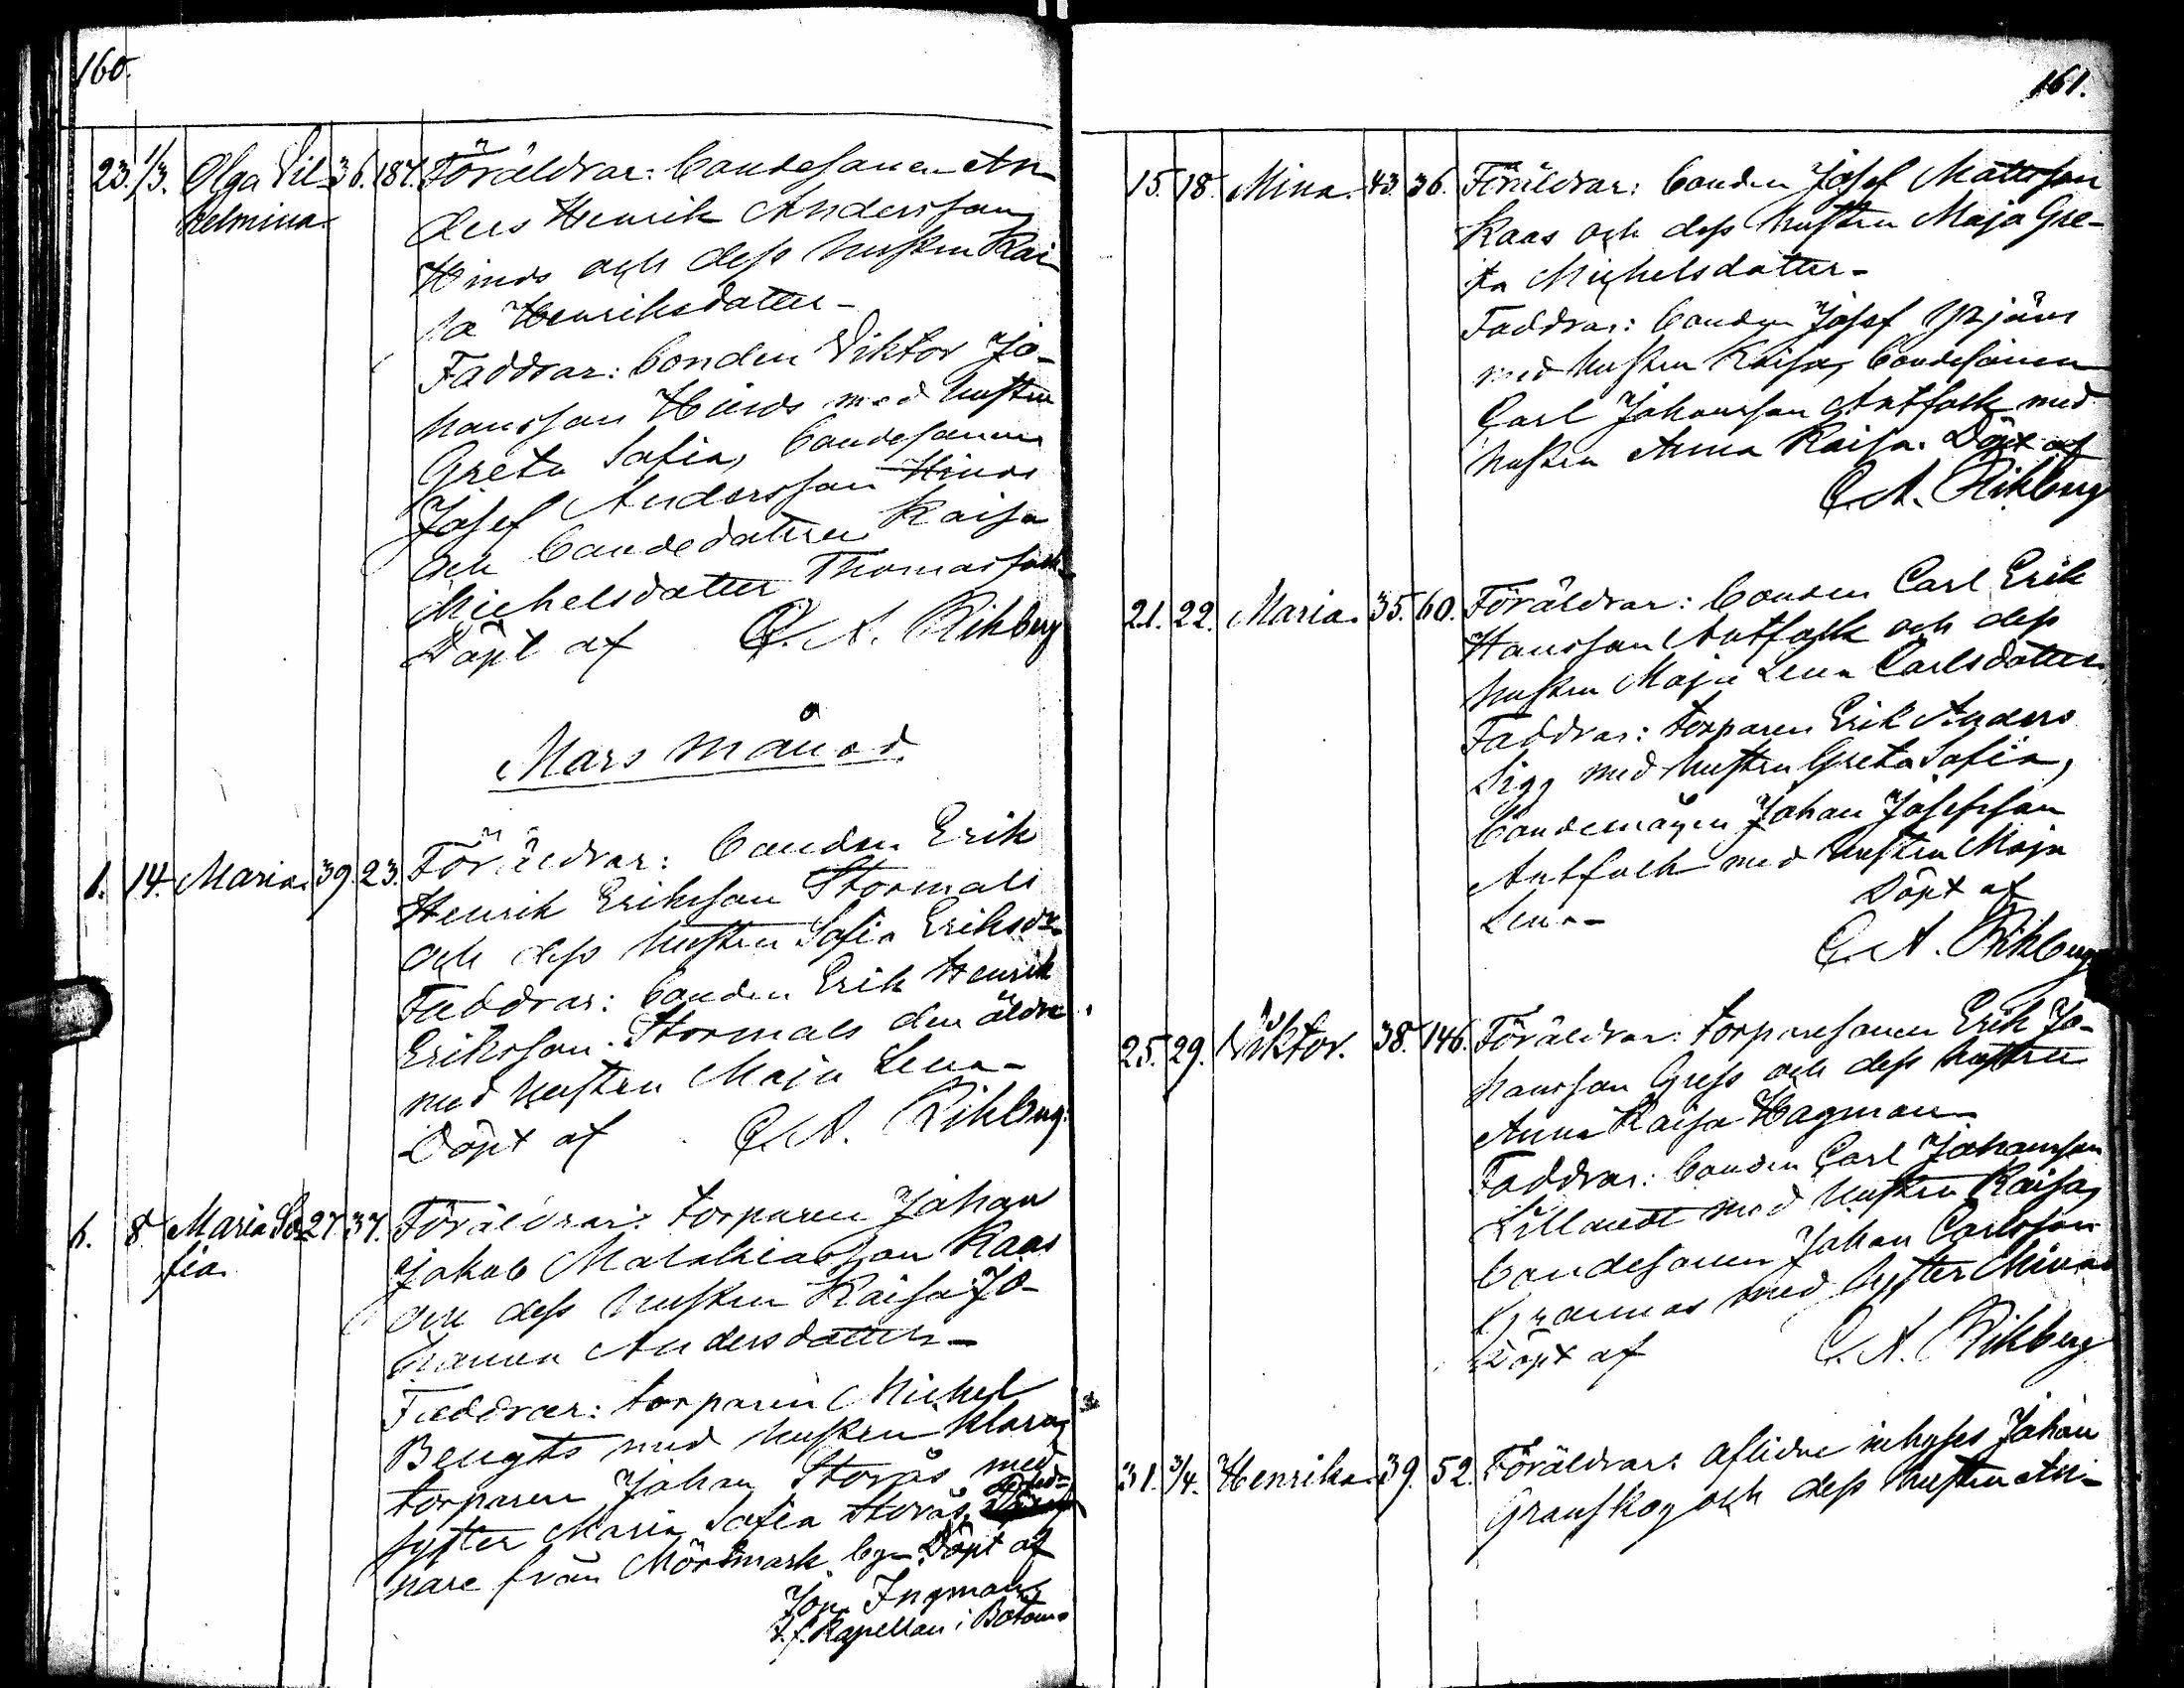 160.
23. 1/3. Olga Vil- 36. 187. Föräldrar: bondesonen An-
helmina. ders Henrik Andersson
Hinds och dess hustru Kai-
sa Henriksdotter-
Faddrar: bonden Viktor Jo-
hansson Hinds med hustru
Greta Sofia, bondesonen
Josef Andersson Hinds
och bondedottren Kaisa
Michelsdotter Thomasfolk-
Döpt af C. A. Rihberg
Mars månad.
1. 14. Maria. 39. 23. Föräldrar: bonden Erik
Henrik Eriksson Stormals
och dess hustru Sofia Eriksdr.
Faddrar: bonden Erik Henrik
Eriksson Stormals den äldre
med hustru Maja Lena-
Döpt af C. A. Rihberg.
6. 8. Maria So- 27. 37. Föräldrar: torparen Johan
fia. Jakob Malakiasson Kaas
och dess hustru Kaisa Jo-
hanna Andersdotter-
Faddrar: torparen Michel
Bengts med hustru Klara,
torparen Johan Storås med
syster Maria Sofia Storås,
nare från Mörtmark by- Döpt af
Jon. Ingman
t.f. Kapellan i Bötom.
161.
15. 18. Mina. 43. 36. Föräldrar: bonden Josef Mattsson
Kaas och dess hustru Maja Gre-
ta Michelsdotter-
Faddrar: bonden Josef Yrjäns
med hustru Kaisa, bondesonen
Carl Johansson Antfolk med
hustru Anna Kaisa. Döpt af
C. A. Rihberg
21. 22. Maria. 35. 60. Föräldrar: bonden Carl Erik
Hansson Antfolk och dess
hustru Maja Lena Carlsdotter
Faddrar: torparen Erik Anders
Sigg med hustru Greta Sofia,
bondemågen Johan Josefsson
Antfolk med hustru Maja
Lena- Döpt af
C. A. Rihberg
25. 29. Viktor. 38. 146. Föräldrar: torparesonen Erik Jo-
hansson Grefs och dess hustru
Anna Kaisa Hagman-
Faddrar: bonden Carl Johansson
Lillandt med hustru Kaisa,
bondesonen Johan Carlsson
Grannas med syster Mina-
Döpt af C. A. Rihberg
31. 3/4. Henrika. 39. 52. Föräldrar: aflidne inhyses Johan
Granskog och dess hustru An-